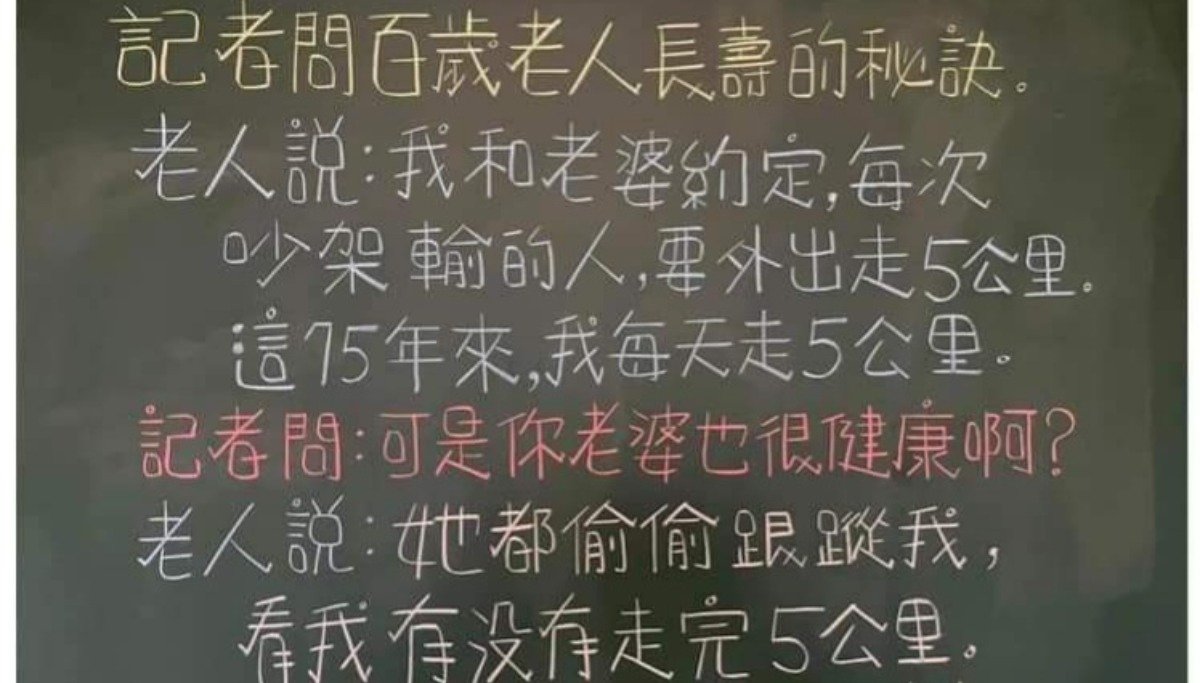 記者問百歲老人長壽的秘訣。
老人說:我和老婆約定,每次
吵架輸的人,要外出走5公里。
這75年來,我每天走5公里。
記者問:可是你老婆也很健康啊?
老人說:她都偷偷跟蹤我,
看我有没有走完5公里。